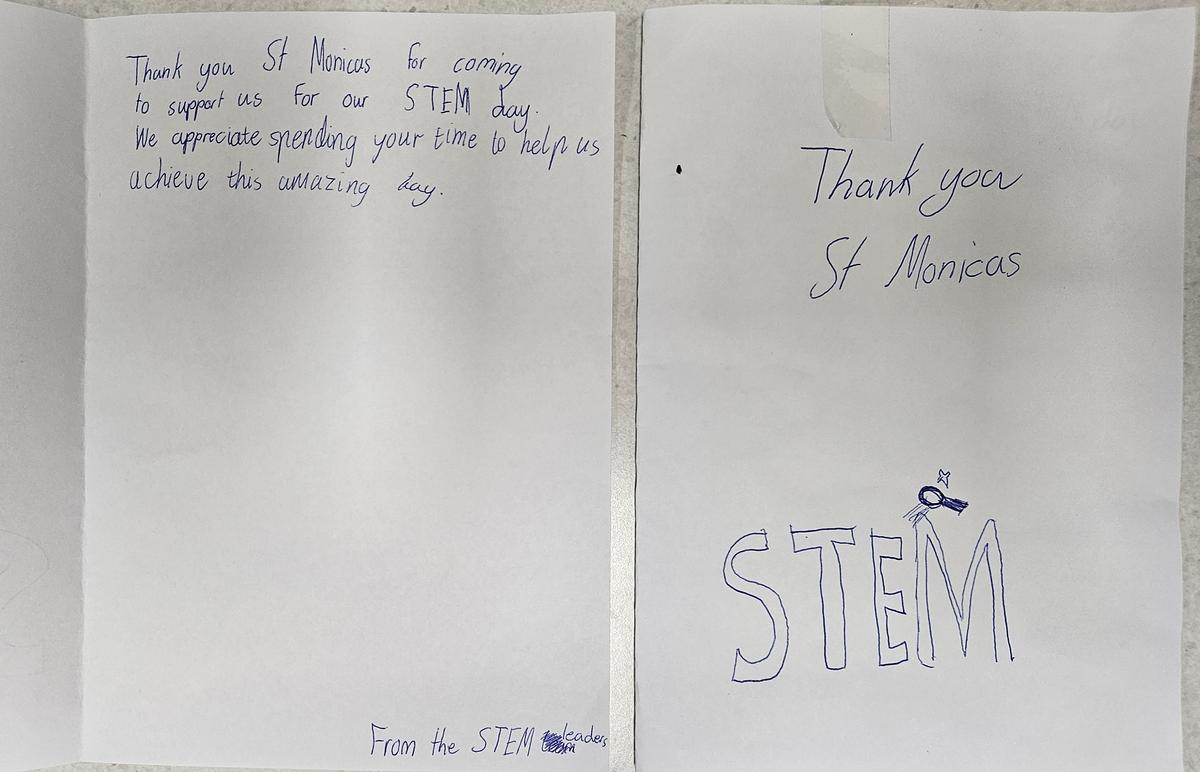 Thank you St Monicas for coming
to support us for our STEM day.
We appreciate spending your time to help us
achieve this amazing day.
From the STEM leaders
Thank you
St Monicas
STEM